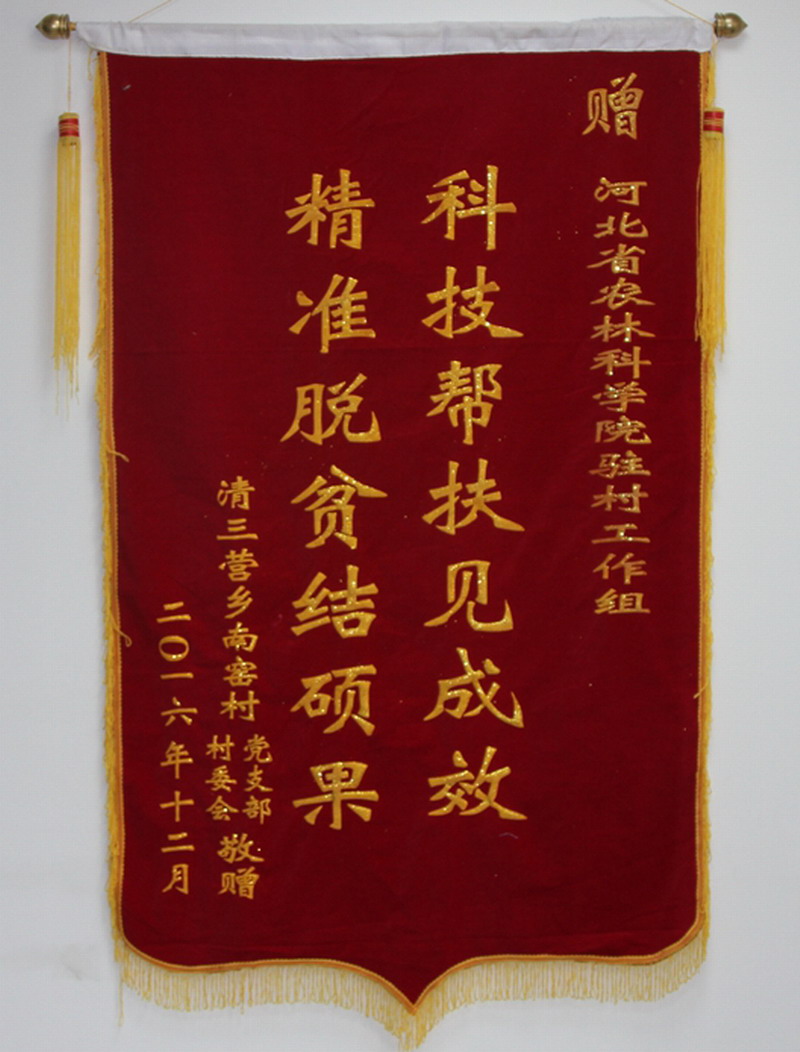 赠
河北省农林科学院驻村工作组
科技帮扶见成效
精准脱贫结硕果
清三营乡南窑村
党支部
村委会
敬赠
二〇一六年十二月